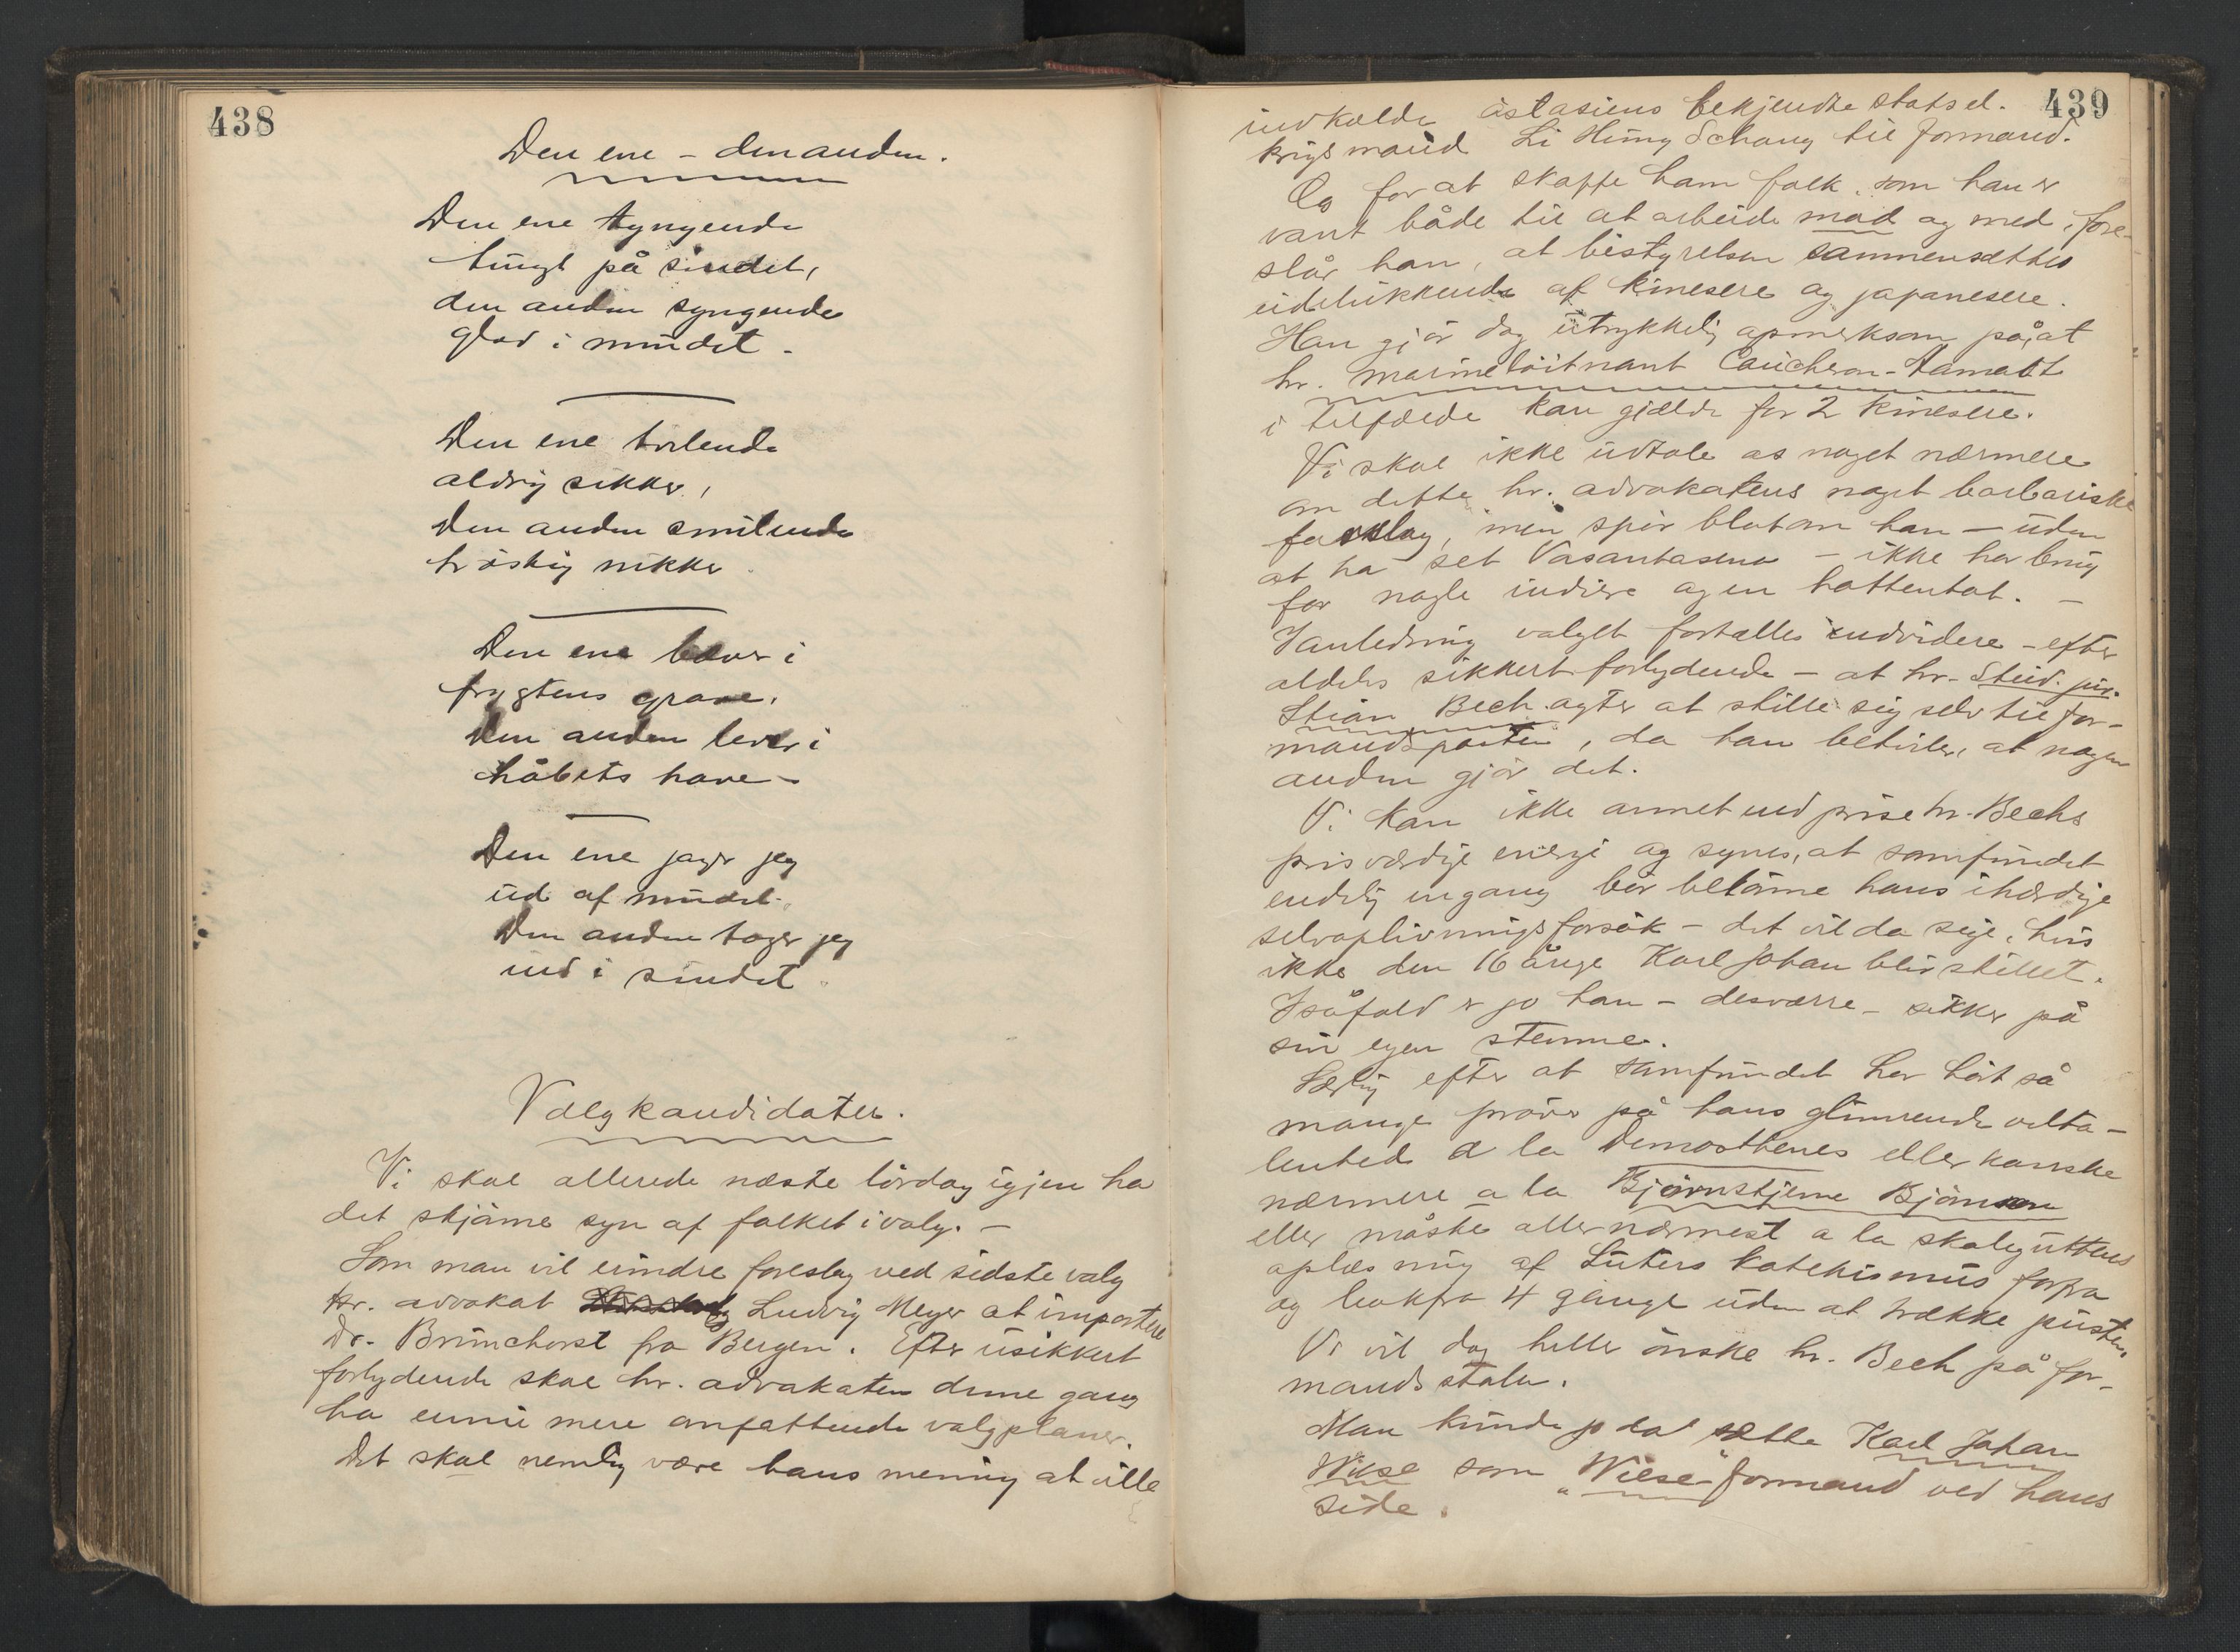 438
Den ene – den anden.
Den ene tyngende
tungt på sindet,
den anden syngende
glad i mindet.
Den ene tvilende
aldrig sikker,
Den anden smilende
trøstig nikker.
Den ene bæver i
frygtens grave,
Den anden lever i
håbets have –
Den ene jager jeg
ud af mindet.
Den anden tager jeg
ind i sindet.
Valgkandidater.
Vi skal allerede næste lørdag igjen ha
det skjønne syn af folket i valg. –
Som man vil erindre foreslog ved sidste valg
hr. advokat Ludvig Meyer at importere
Dr. Brunchorst fra Bergen. Efter usikkert
forlydende skal hr. advokaten denne gang
ha ennu mere omfattende valgplaner.
Det skal nemlig være hans mening at ville
439
indkalde østasiens bekjendte stats el.
krigsmand Li Hung Schang til formand.
Og for at skaffe ham folk, som han er
vant både til at arbeide mod og med, fore-
slår han, at bestyrelsen sammensættes
udelukkende af kinesere og japanesere.
Han gjør dog utrykkelig opmerksom på, at
hr. marineløitnant Caucheron-Aamodt
i tilfælde kan gjælde for 2 kinesere.
Vi skal ikke udtale os noget nærmere
om dette hr. advokatens noget barbariske
forslag, men spør blot om han – uden
at ha set Vasantasena – ikke har brug
for nogle indiere og en hottentot. –
I anledning valget fortælles endvidere – efter
aldeles sikkert forlydende – at hr. Stud. jur.
Stian Bech agter at stille sig selv til for-
mandsposten, da han betviler, at nogen
anden gjør det.
Vi kan ikke annet end prise hr. Bechs
prisværdige energi og synes, at samfundet
endelig engang bør belønne hans ihærdige
selvoplivningsforsøk – det vil da sige, hvis
ikke den 16 årige Karl Johan blir stillet.
I såfald er jo han – desværre – sikker på
sin egen stemme.
Særlig efter at samfundet har hørt så
mange prøver på hans glimrende velta-
lenhed a la Demosthenes eller kanske
nærmere a la Bjørnstjerne Bjørnson
eller måske allernærmest a la skolegutters
oplæsning af Luters katekismus forfra
og bakfra 4 gange uden at trække pusten.
Vi vil dog heller ønske hr. Bech på for-
mandsstolen.
Man kunde jo da sætte Karl Johan
Wiese som "Wiese"formand ved hans
side.